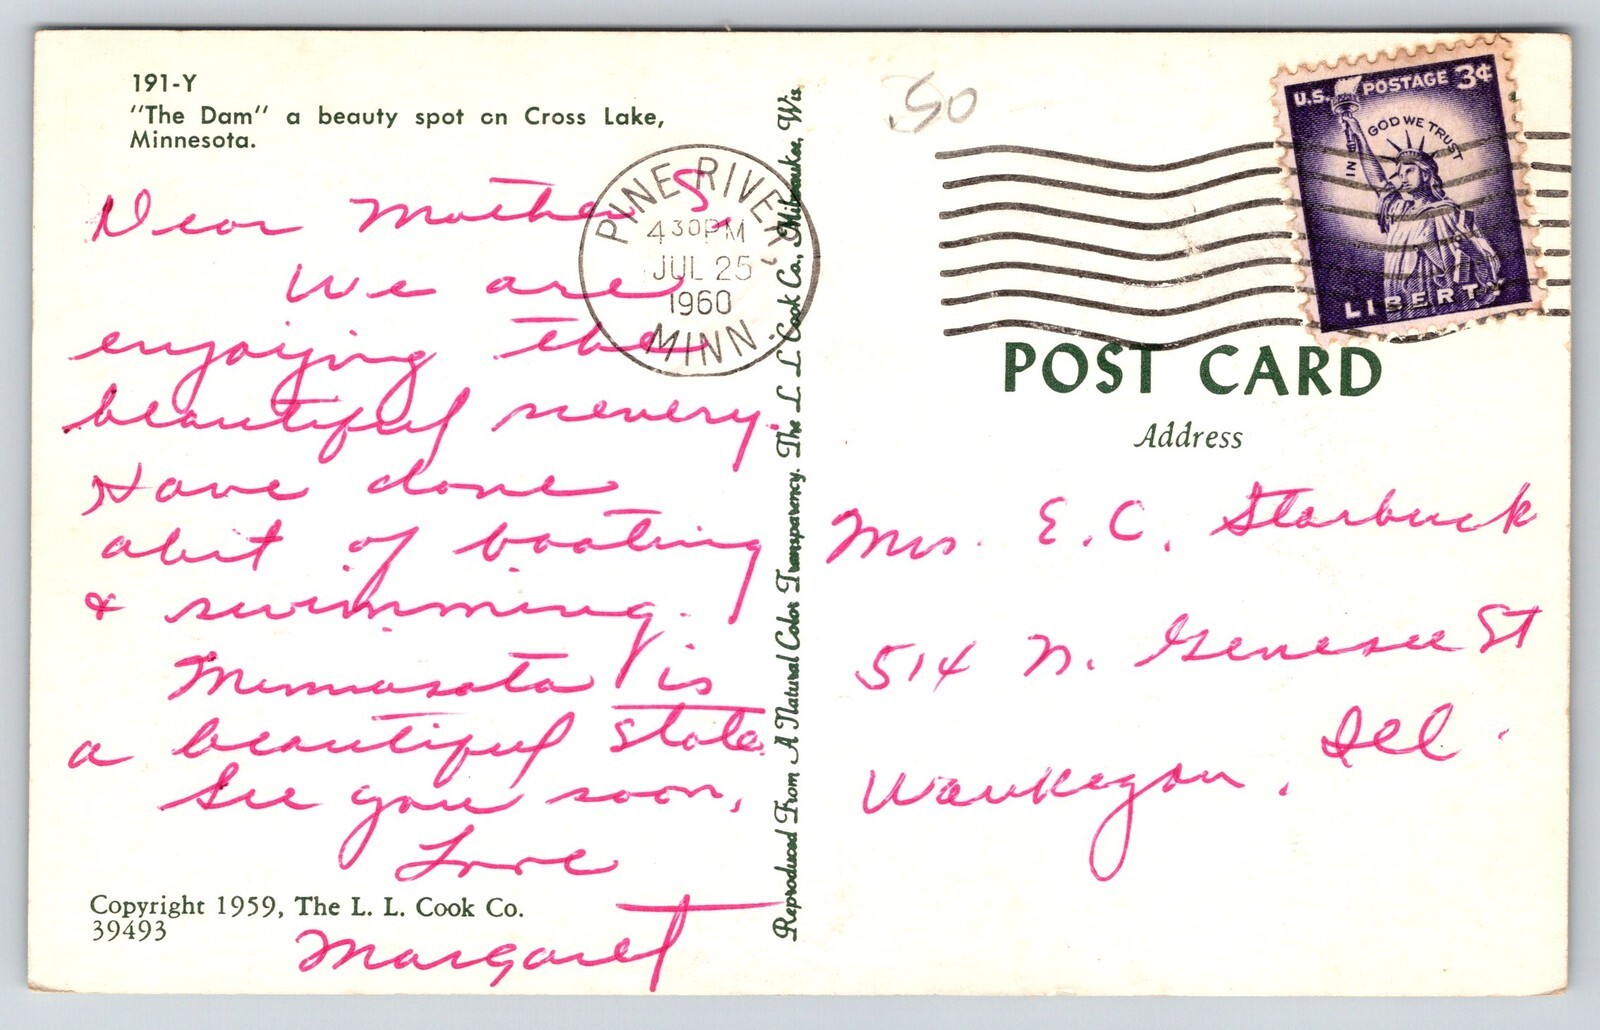 191-Y
"The Dam" a beauty spot on Cross Lake,
Minnesota.
Dear Mother S.
We are
enjoying the
beautiful scenery.
Have done
abit of boating
& swimming.
Minnesota is
a beautiful state.
See you soon,
Love
Margaret
Copyright 1959, The L. L. Cook Co.
39493
PINE RIVER
4 30PM
JUL 25
1960
MINN.
Reproduced From A Natural Color Transparency. The L. L. Cook Co., Milwaukee, Wis.
50
U.S. POSTAGE 3¢
IN GOD WE TRUST
LIBERTY
POST CARD
Address
Mrs. E. C. Starbuck
514 N. Genesee St
Waukegan, Ill.